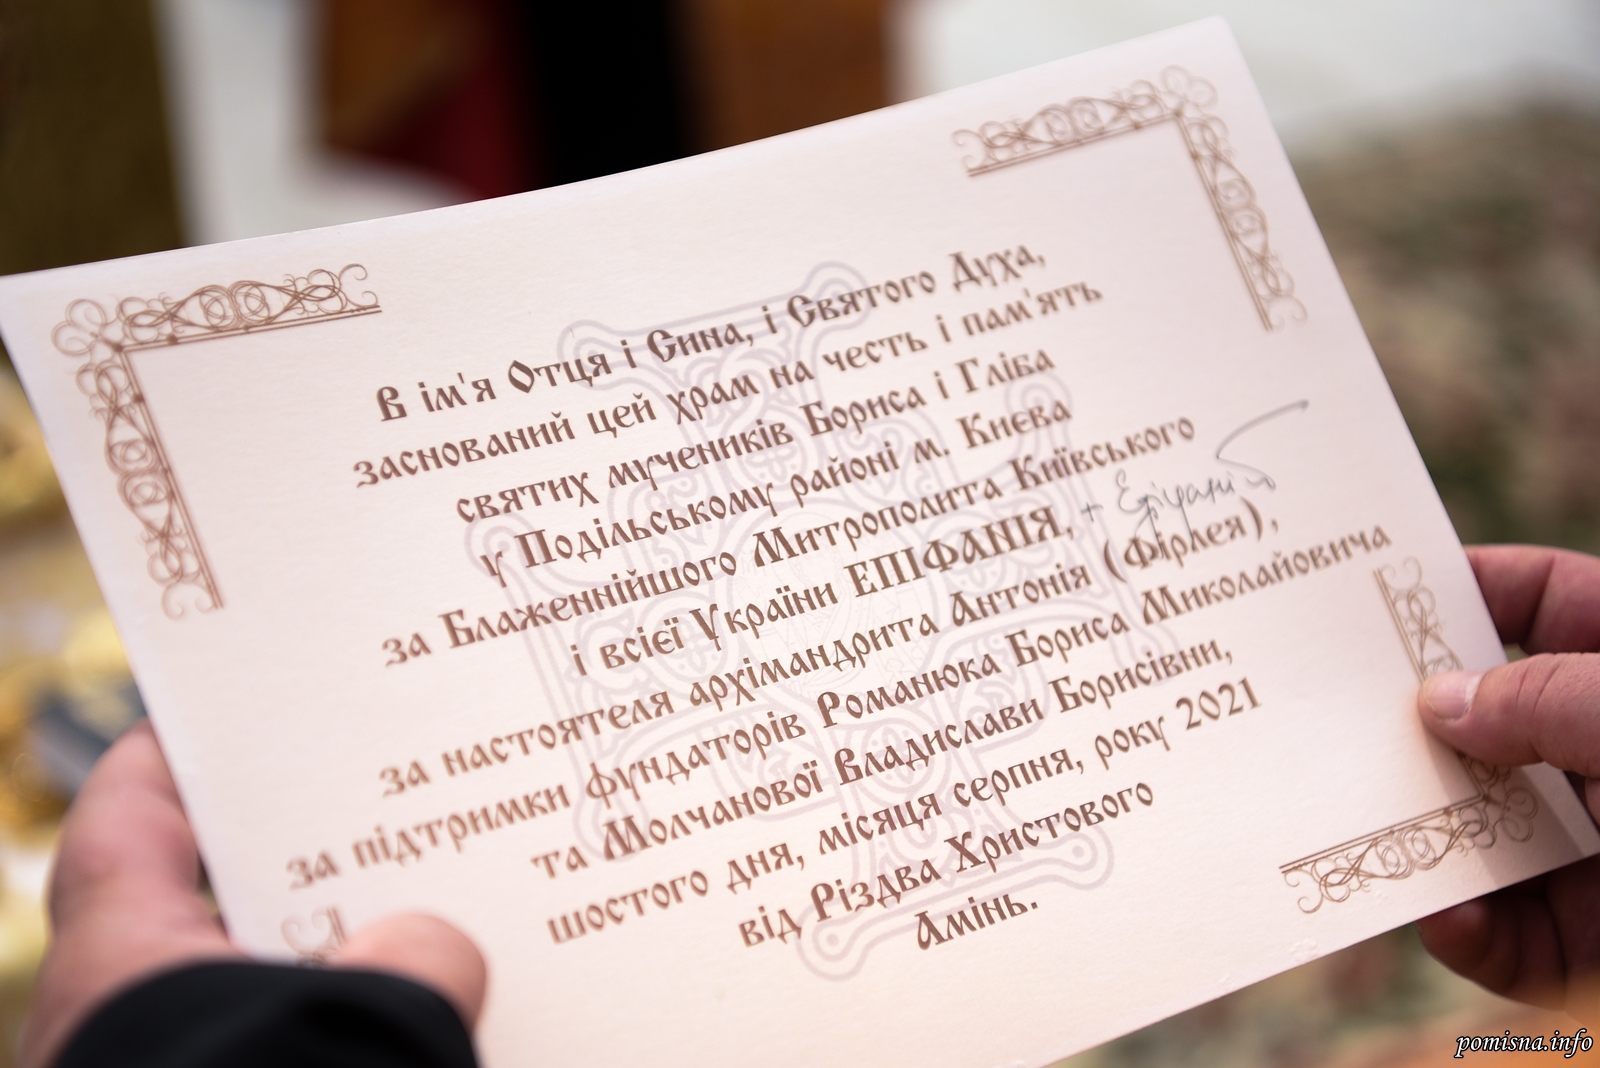 В ім'я Отця і Сина, і Святого Духа,
заснований цей храм на честь і пам'ять
святих мучеників Бориса і Гліба
у Подільському районі м. Києва
за Блаженнійшого Митрополита Київського
і всієї України ЕПІФАНІЯ, + Епіфаній
за настоятеля архімандрита Антонія (Фірлея),
за підтримки фундаторів Романюка Бориса Миколайовича
та Молчанової Владислави Борисівни,
шостого дня, місяця серпня, року 2021
від Різдва Христового
Амінь.
pomisna.info